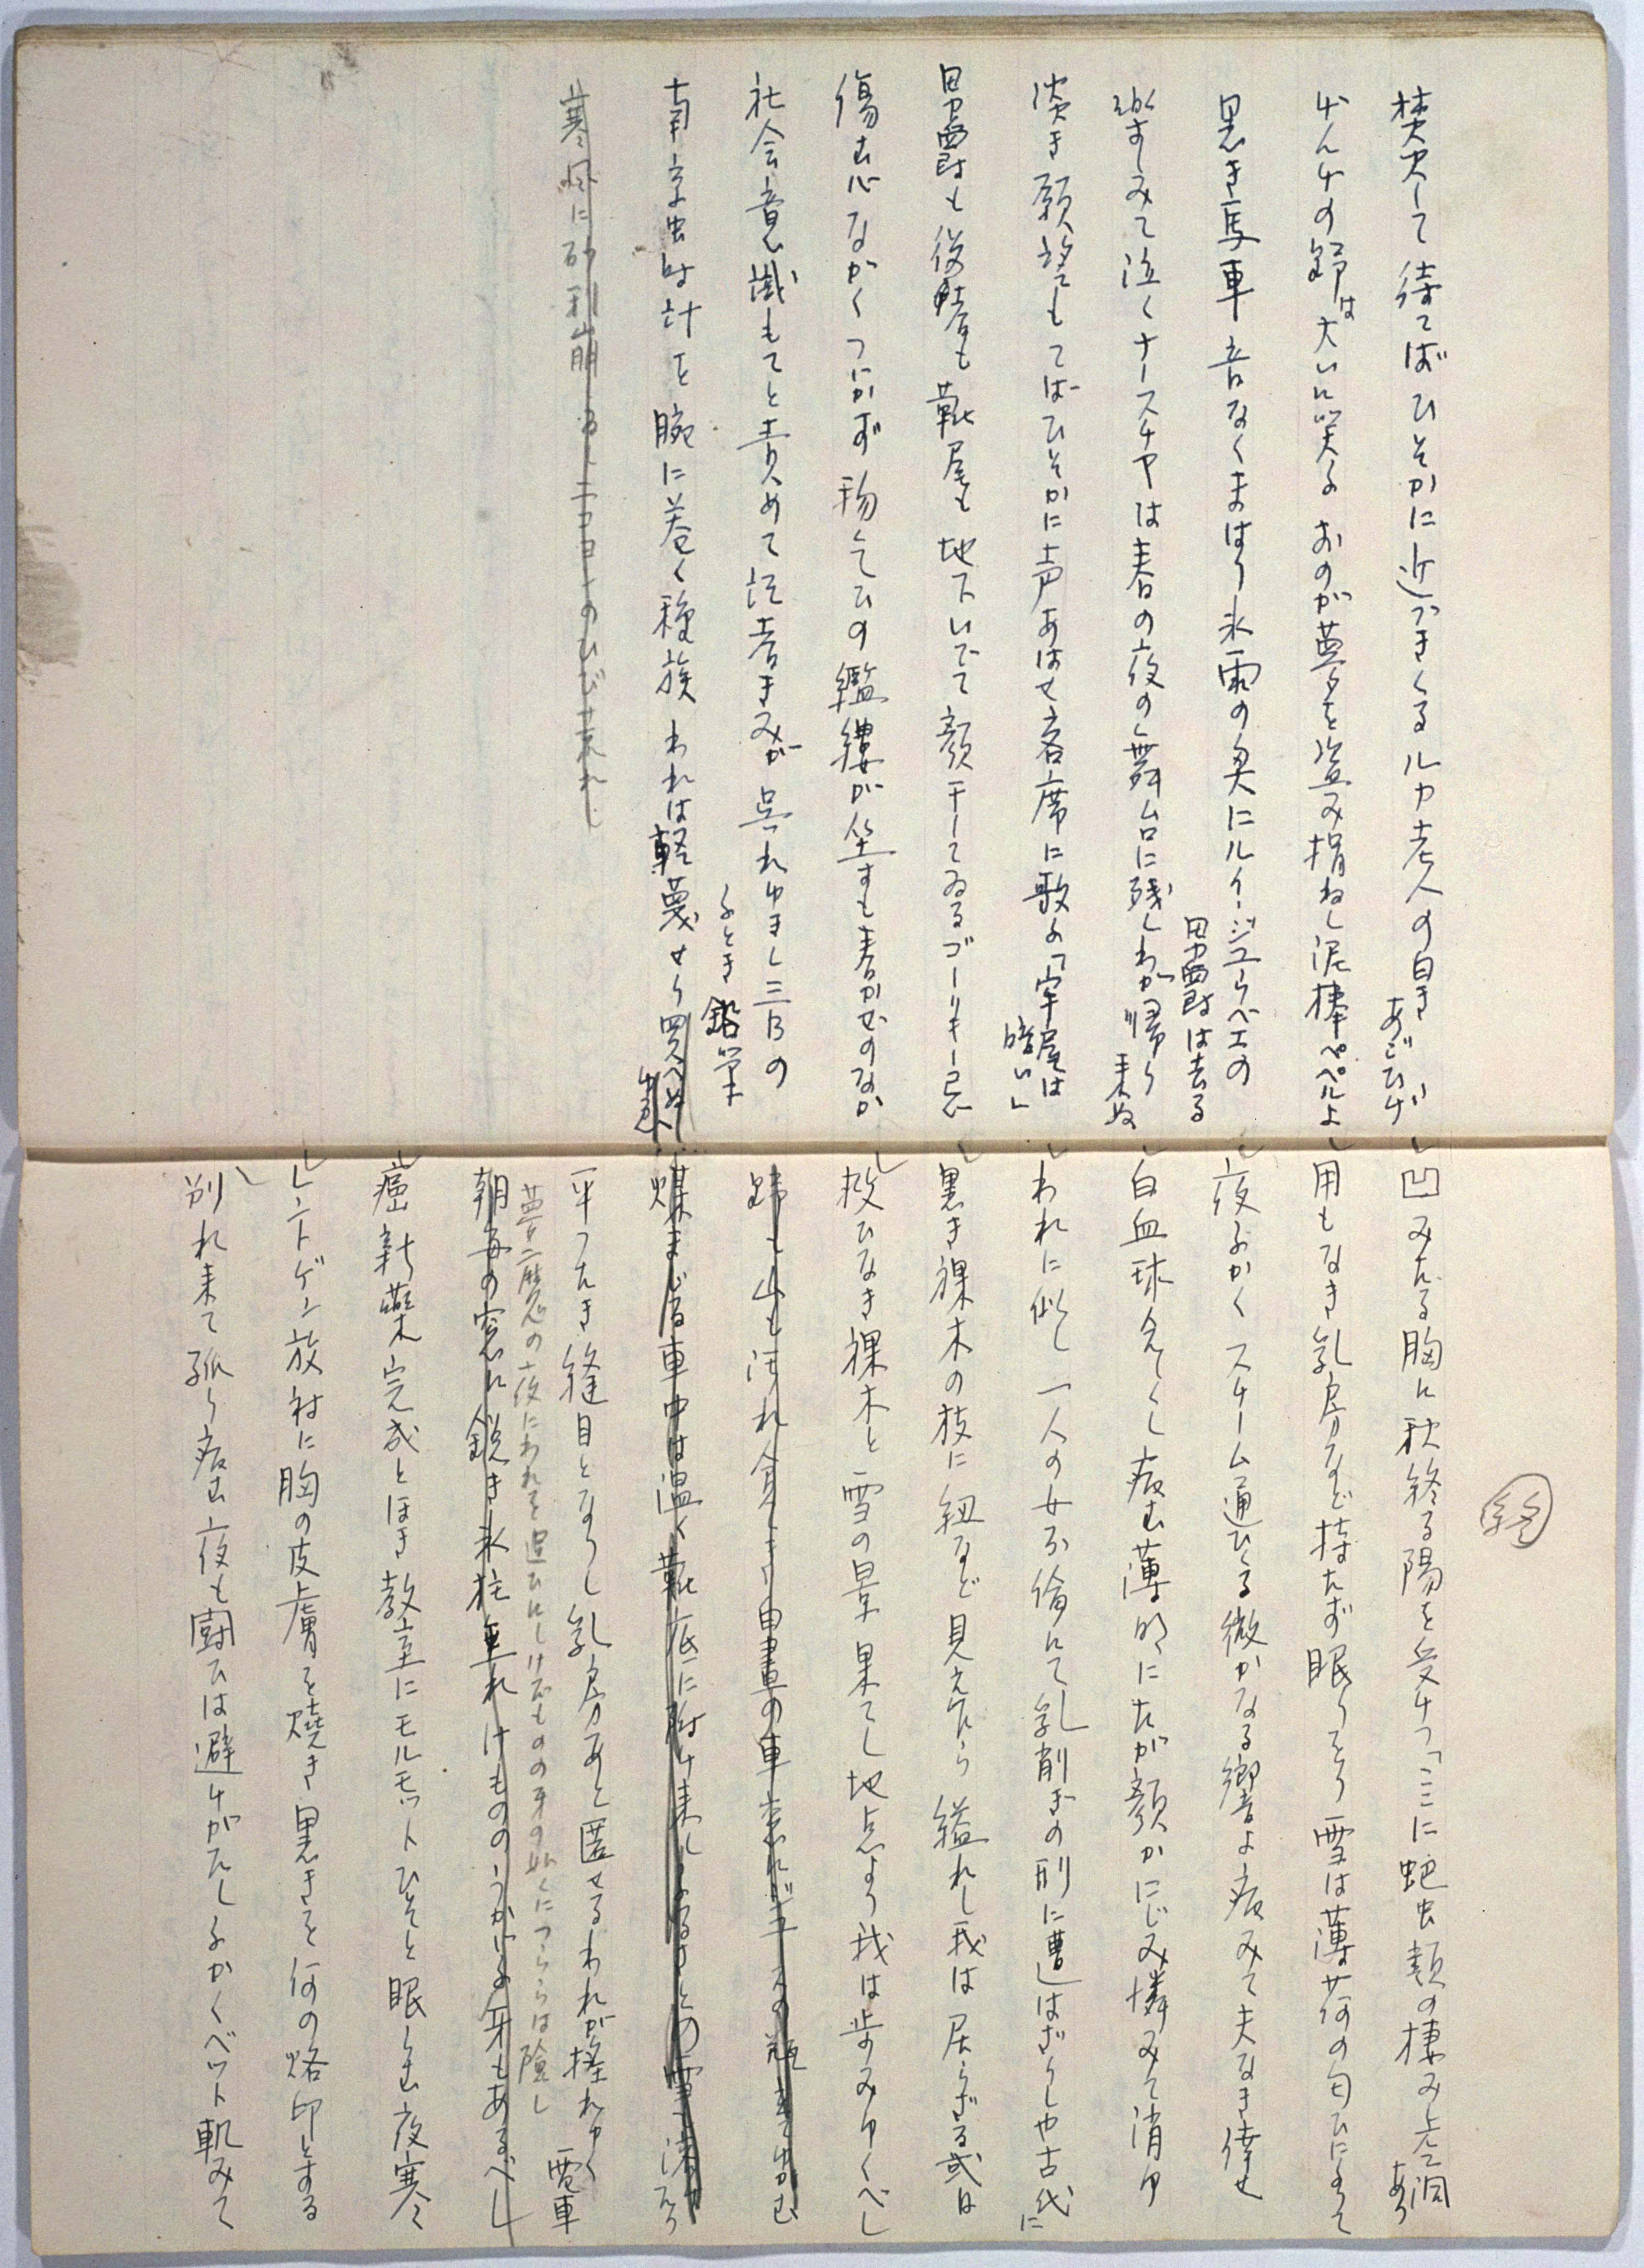 焚火して待てばひそかに近づきくるルカ老人の白きあごひげ
ナースチャの
は大いに笑ふおのが夢を盗み損ねし泥棒ペペルよ
黒き馬車音なくまはり氷雨の奥にルイ・ジューベエの男爵は去る
楽しみて泣くナースチャは春の夜の舞台に残しわが帰り来ぬ
淡き願望もてばひそかに声あはせ客席に歌ふ「牢屋は暗い」
男爵も役者も靴屋も地下いでて顔干してゐるゴーリキー忌
傷む心なかくつにかず物乞ひの襤褸が坐すも春かぜのなか
社会意識もてと責めて記者きみが呉れゆきし三Bのふとき鉛筆
南京虫時計を腕に巻く種族われは軽蔑せり買へぬ
寒風に砂利崩るニコヨンのひび荒れし
㊡
凹みたる胸に秋終る陽を受けつ「ここに蛇虫類の棲み古洞あり
用もなき乳房など持たず眠りをり雪は薄荷の匂ひになりて
夜ふかくスチーム通ひくる微かなる響よ病みて夫なき倖せ
白血球
病む薄明にたが顔かにじみ憐みて消ゆ
われに似し一人の女不倫にて乳削ぎの刑に遭はざりしや古代に
黒き裸木の枝に紐など見えたら縊れし我は居らざる或日
救ひなき裸木と雪の景果てし地点より我は歩みゆくべし
跡も山も汚れ
白昼の車
煤まじる車中は温く靴底に附け来しふるさとの雪
平つたき縫目となりし乳房あと匿せるわれが搖れゆく電車
夢魔の夜にわれを追ひにしけだものの牙の如くにつららは険し
朝毎の窓に鋭き氷柱垂れけもののうかがふ牙もあるべし
癌新薬完成とほき教室にモルモットひそと眠らむ夜寒
レントゲン放射に胸の皮膚を焼き黒きを何の烙印とする
別れ来て孤り病む夜も闘ひは避けがたしふかくベット軋みて